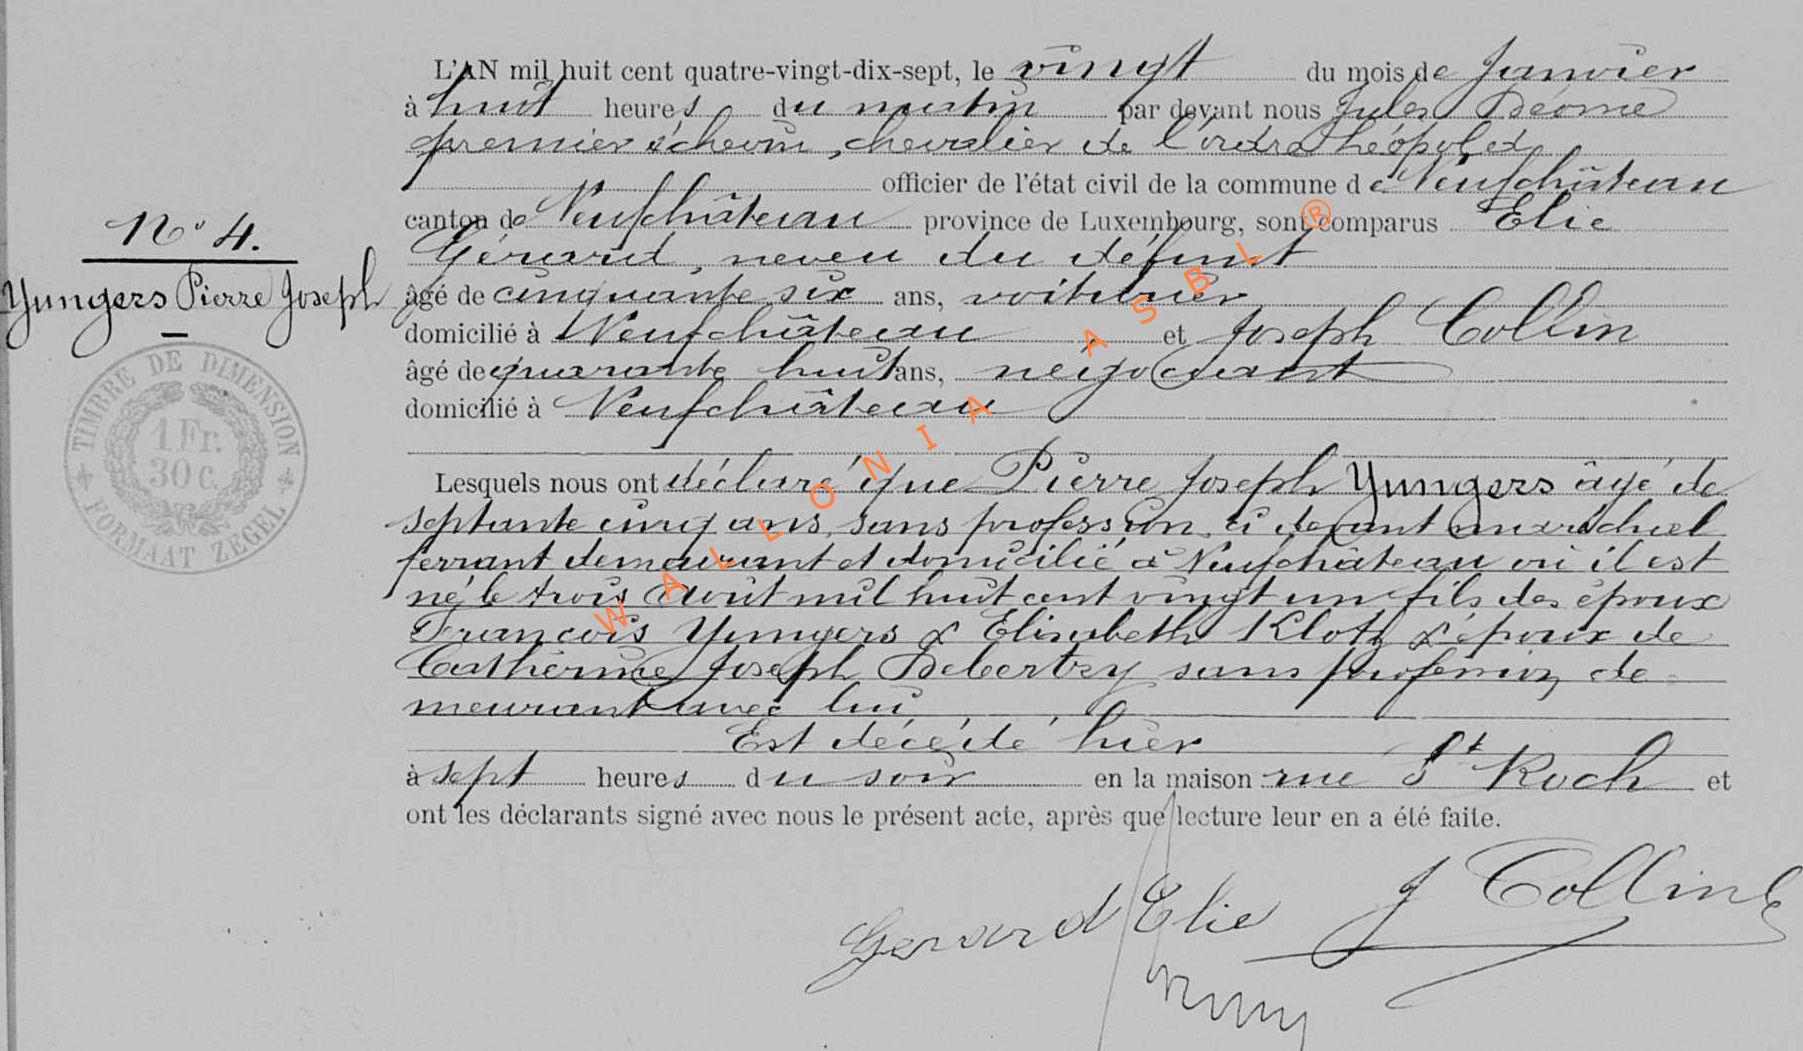 L'AN mil huit cent quatre-vingt-dix-sept, le vingt du mois de Janvier
à huit heures du matin par devant nous Jules
premier échevin, chevalier de l'ordre Léopold
officier de l'état civil de la commune de Neufchâteau
canton de Neufchâteau province de Luxembourg, sont comparus Elie
N° 4.
Gérard, neveu du défunt
Yungers Pierre Joseph
âgé de cinquante six ans, voiturier
domicilié à Neufchâteau et Joseph Collin
âgé de quarante huit ans, négociant
domicilié à Neufchâteau
TIMBRE DE DIMENSION
1 Fr.
30 c.
FORMAAT ZEGEL
Lesquels nous ont déclaré que Pierre Joseph Yungers âgé de
septante cinq ans, sans profession, ci devant maréchal
ferrant demeurant et domicilié à Neufchâteau où il est
né le trois août mil huit cent vingt un fils des époux
François Yungers & Elisabeth Klotz & époux de
Catherine Joseph Debertry sans profession, de
meurant avec lui
Est décédé hier
à sept heures du soir en la maison rue St Roch et
ont les déclarants signé avec nous le présent acte, après que lecture leur en a été faite.
Gerard Elie
J Collin
WALLONIA ASBL ®